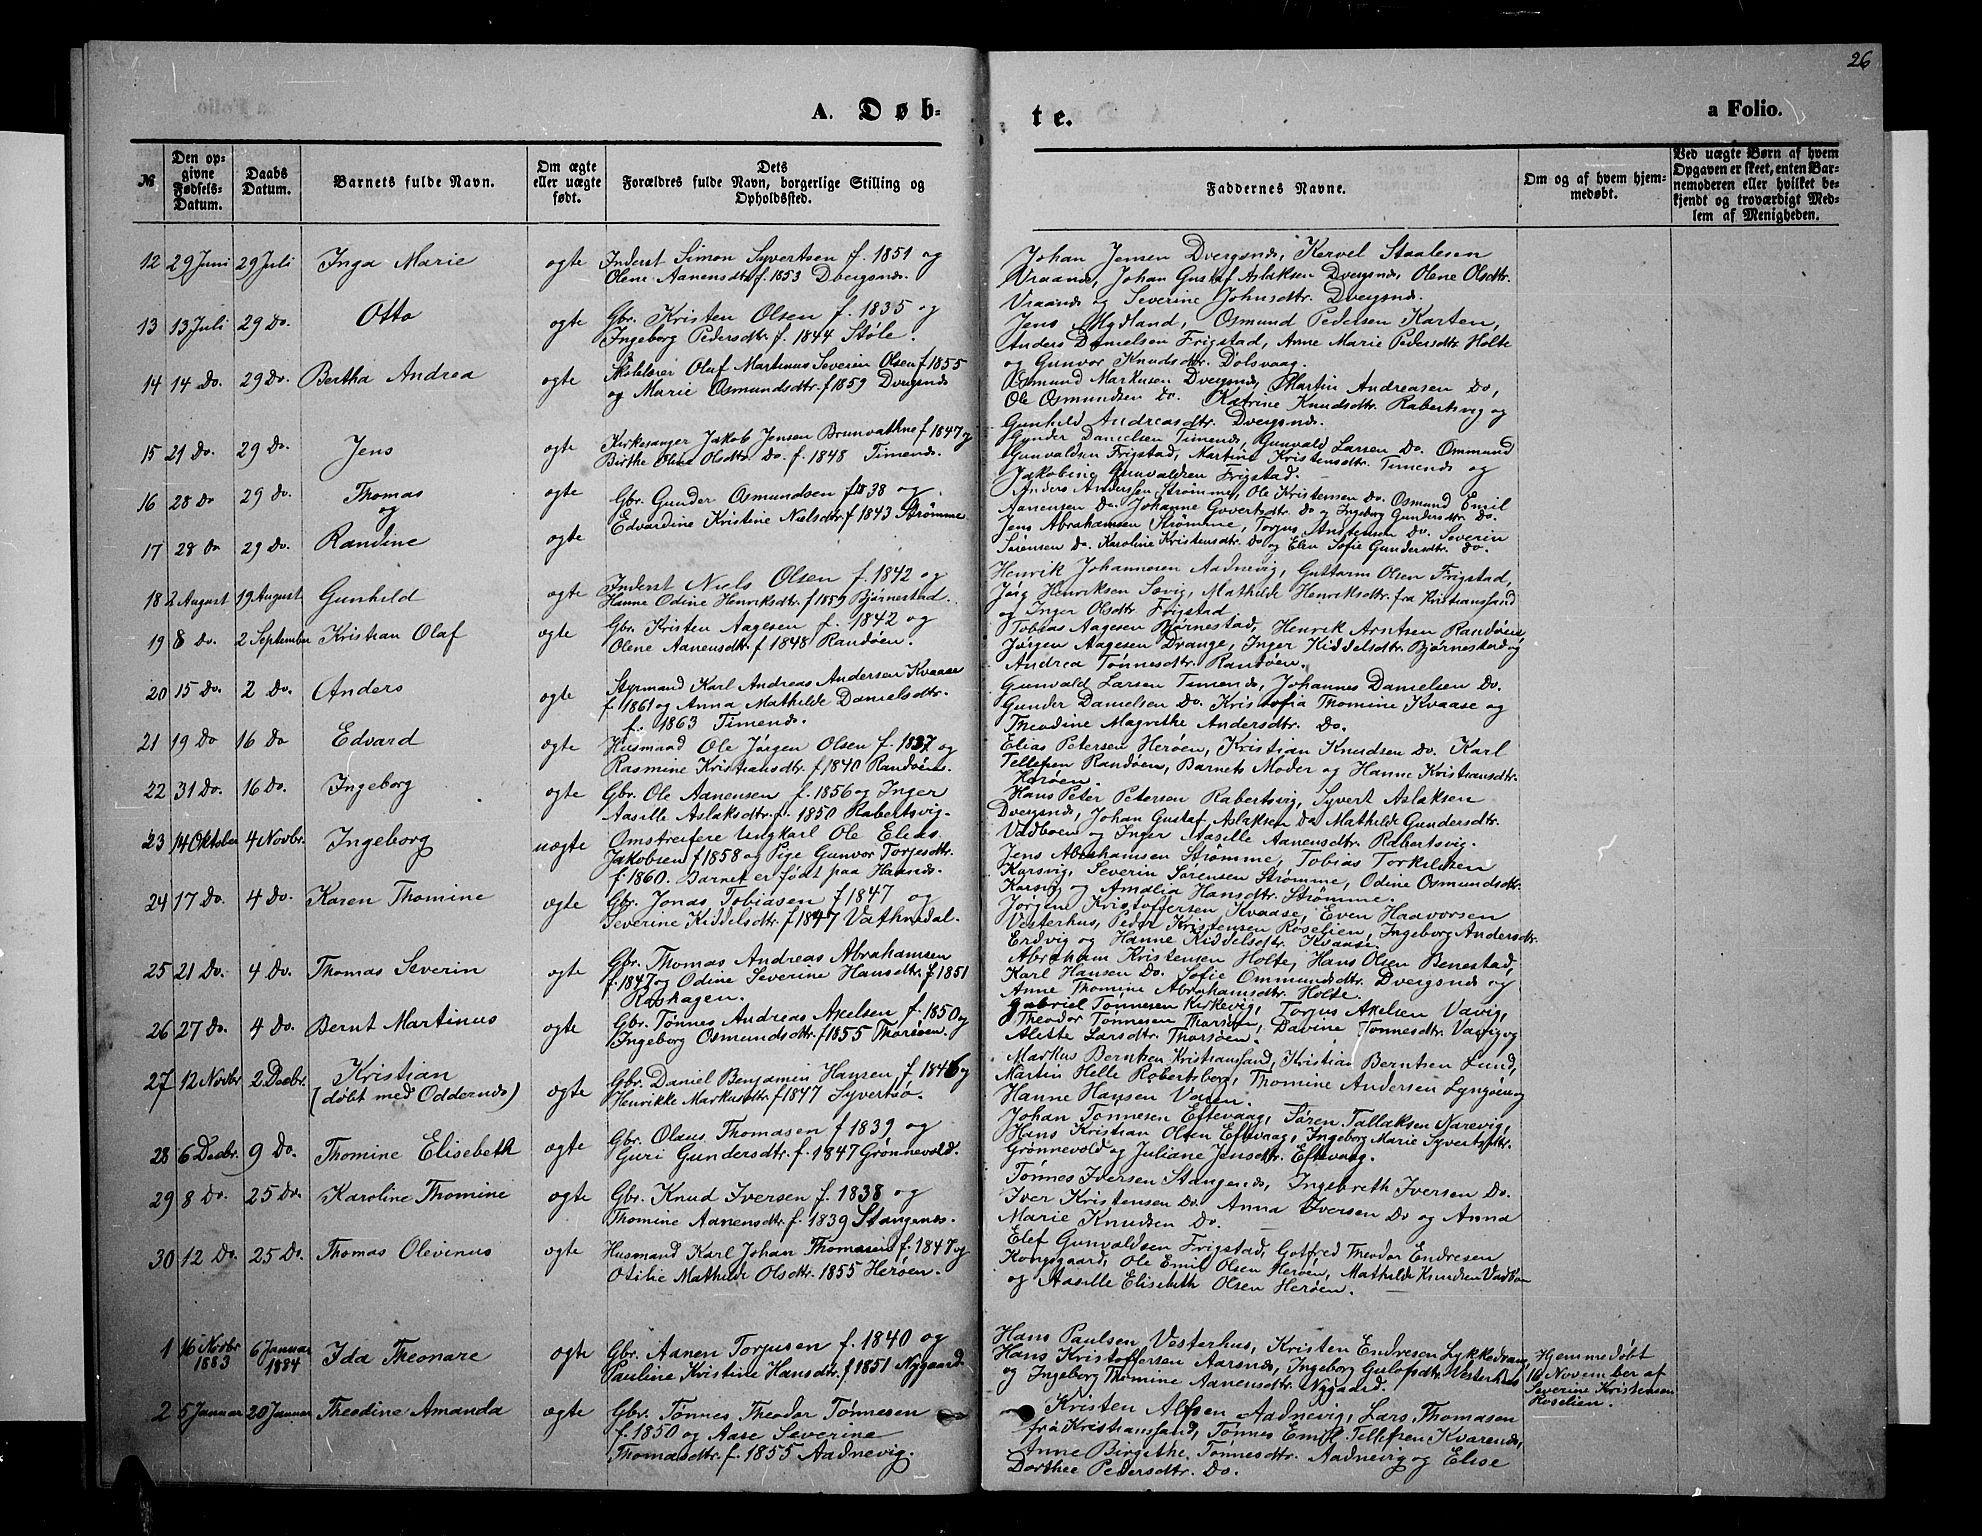 26
A. Døb-
te.
a Folio.
№
Den op-
givne
Fødsels-
Datum.
Daabs
Datum.
Barnets fulde Navn.
Om ægte
eller uægte
født.
Dets
Forældres fulde Navn, borgerlige Stilling og
Opholdssted.
Faddernes Navne.
Om og af hvem hjem-
medøbt.
Ved uægte Børn af hvem
Opgaven er skeet, enten Bar-
nemoderen eller hvilket be-
kjendt og troværdigt Med-
lem af Menigheden.
12 29 Juni 29 Juli Inga Marie ogte Inderst Simon Syvertsen f. 1851 og
Olene Aanensdtr. f. 1853 Dvergsnes.
Johan Jensen Dvergsnes, Kervel Staalesen
Vraanes, Johan Gustaf Aslaksen Dvergsnes, Olene Olsdtr.
Vraanes og Severine Johnsdtr. Dvergsnes.
13 13 Juli 29 Do. Otto ogte Gbr. Kristen Olsen f. 1835 og
Ingeborg Pedersdtr. f. 1844 Støle.
Jens Mydland, Osmund Pedersen Karten,
Anders Danielsen Frigstad, Anne Marie Pedersdtr. Holte
og Gunvor Knudsdtr. Dolsvaag.
14 14 Do. 29 Do. Bertha Andrea ogte Skolelærer Oluf Martinus Severin Olsen f 1855
og Marie Osmundsdtr. f 1859 Dvergsnes
Osmund Markusen Dvergsnes, Martin Andreasen Do,
Ole Osmundsen Do. Katrine Knudsdtr. Rabertsvig og
Gunhild Andreasdtr. Dvergsnes.
15 21 Do. 29 Do. Jens ogte Kirkesanger Jakob Jensen Brunvathne f 1847 og
Birthe Oline Olsdtr. Do. f. 1848 Timenes.
Gunder Danielsen Timenes, Gunvald Larsen Do. Ommund
Gunvaldsen Frigstad, Martine Kristensdtr. Timenes og
Jakobine Gunvaldsen Frigstad.
16 28 Do 29 Do. Thomas ogte Gbr. Gunder Osmundsen f 1838 og
og
Edvardine Kristine Nielsdtr. f 1843 Strømme.
Anders Andersen Strømme, Ole Kristensen Do. Osmund Emil
Aanensen Do. Johanne Govertsdtr. Do og Ingeborg Gundersdtr. Do.
17 28 Do 29 Do. Randine ogte
Jens Abrahamsen Strømme, Torjus Anstensen Do. Severin
Sørensen Do. Karoline Kristensdtr. Do og Elen Sofie Gundersdtr. Do.
18 2 August 19 August Gunhild ogte Inderst Niels Olsen f. 1842 og
Hanne Odine Henriksdtr. f 1859 Bjørnestad.
Henrik Johannesen Aadnevig, Guttorm Olsen Frigstad,
Jørg Henriksen Sævig, Mathilde Henriksdtr. fra Kristianssand
og Inger Olsdtr. Frigstad
19 8 Do. 2 September Kristian Olaf ogte Gbr. Kristen Aagesen f. 1842 og
Olene Aanensdtr. f. 1848 Randøen.
Tobias Aagesen Bjørnestad, Henrik Arntsen Randøen,
Jørgen Aagesen Drange, Inger Kiddelsdtr. Bjørnestad og
Andrea Tønnesdtr. Randøen.
20 15 Do. 2 Do. Anders ogte Styrmand Karl Andreas Andersen Kvaase
f 1861 og Anna Mathilde Danielsdtr.
f. 1863 Timenes.
Gunvald Larsen Timenes, Johannes Danielsen Do.
Gunder Danielsen Do. Kristofia Thomine Kvaase og
Theodine Magrethe Andersdtr. Do.
21 19 Do 16 Do Edvard ogte Husmand Ole Jørgen Olsen f. 1837 og
Rasmine Kristiansdtr. f 1840 Randøen.
Elias Petersen Herøen, Kristian Knudsen Do. Karl
Tellefsen Randøen, Barnets Moder og Hanne Kristiansdtr.
Herøen.
22 31 Do. 16 Do. Ingeborg ogte Gbr. Ole Aanensen f. 1856 og Inger
Aasille Aslaksdtr. f. 1850 Rabertsvig.
Hans Peter Petersen Rabertsvig, Syvert Aslaksen
Dvergsnes, Johan Gustaf Aslaksen Do Mathilde Gundersdtr.
Vadboen og Inger Aasille Aanensdtr. Rabertsvig.
23 14 Oktober 4 Novbr. Ingeborg uægte Omstreifere Ungkarl Ole Elias
Jakobsen f 1858 og Pige Gunvor Torjesdtr.
f. 1860. Barnet er født paa Haanes.
Jens Abrahamsen Strømme, Tobias Torkildsen
Korsvig, Severin Sørensen Strømme, Odine Osmundsdtr.
Korsvig og Amalia Hansdtr. Strømme.
24 17 Do. 4 Do. Karen Thomine ogte Gbr. Jonas Tobiasen f 1847 og
Severine Kiddelsdtr. f 1847 Vathnedal.
Jørgen Kristoffersen Kvaase, Even Haavorsen
Vesterhus, Peder Kristensen Roselien, Ingeborg Andersdtr.
Erdvig og Hanne Kiddelsdtr. Kvaase.
25 21 Do. 4 Do. Thomas Severin ogte Gbr. Thomas Andreas Abrahamsen
f. 1847 og Odine Severine Hansdtr. f 1851
Røshagen.
Abraham Kristensen Holte, Hans Olsen Benestad,
Karl Hansen Do. Sofie Ommundsdtr. Dvergsnes og
Anne Thomine Abrahamsdtr. Holte.
26 27 Do. 4 Do. Bernt Martinus ogte Gbr. Tønnes Andreas Axelsen f. 1850 og
Ingeborg Osmundsdtr. f 1855 Tharøen.
Gabriel Tønnesen Kirkevig, Torjus Axelsen Vavig,
Theodor Tønnesen Tharøen, Davine Tønnesdtr. Vavig og
Alette Larsdtr. Tharøen.
27 12 Novbr 2 Decbr. Kristian
(døbt med Oddernes) ogte Gbr. Daniel Benjamin Hansen f. 1846 og
Henrikke Markusdtr. f 1847 Syvertsø.
Markus Berntsen Kristianssand, Kristian Berntsen Lund,
Martin Helle Robertsberg, Thomine Andersen Lyngøen og
Hanne Hansen Varen.
28 6 Decbr. 9 Do. Thomine Elisebeth ogte Gbr. Olaus Thomasen f 1839 og
Guri Gundersdtr. f. 1847 Grønnevold.
Johan Tønnesen Eftevaag, Søren Tallaksen Narevig,
Hans Kristian Olsen Eftevaag, Ingeborg Marie Syvertsdtr.
Grønnevold og Juliane Jensdtr. Eftevaag.
29 8 Do. 25 Do. Karoline Thomine ogte Gbr. Knud Iversen f. 1838 og
Thomine Aanensdtr. f. 1839 Stangenes.
Tønnes Iversen Stangenes, Ingebreth Iversen Do.
Iver Kristensen Do. Anna Iversen Do og Anna
Marie Knudsen Do.
30 12 Do. 25 Do. Thomas Olevinus ogte Husmand Karl Johan Thomasen f. 1847 og
Otilie Mathilde Olsdtr. 1855 Herøen.
Elef Gunvaldsen Frigstad, Gotfred Theodor Endresen
Kongsgaard, Ole Emil Olsen Herøen, Mathilde Knudsen Vadboen
og Aasille Elisebeth Olsen Herøen.
1 16 Novbr 1883 6 Januar 1884 Ida Theonare ogte Gbr. Aanen Torjusen f. 1840 og
Pauline Kristine Hansdtr. f 1851 Nygaard.
Hans Paulsen Vesterhus, Kristen Endresen Lykkedrang,
Hans Kristoffersen Aarsnes, Ingeborg Gulofsdtr. Vesterhus
og Ingeborg Thomine Aanensdtr. Nygaard.
Hjemmedøbt
16 November af
Severine Kristensen
Roselien.
2 5 Januar 20 Januar Theodine Amanda ogte Gbr. Tønnes Theodor Tønnesen
f. 1850 og Aase Severine
Thomasdtr. f. 1855 Aadnevig.
Kristen Alfsen Aadnevig, Lars Thomasen
fra Kristianssand, Tønnes Emil Tellefsen Kvarenes,
Anne Birgithe Tønnesdtr. Aadnevig og Elise
Dorthee Pedersdtr. Do.